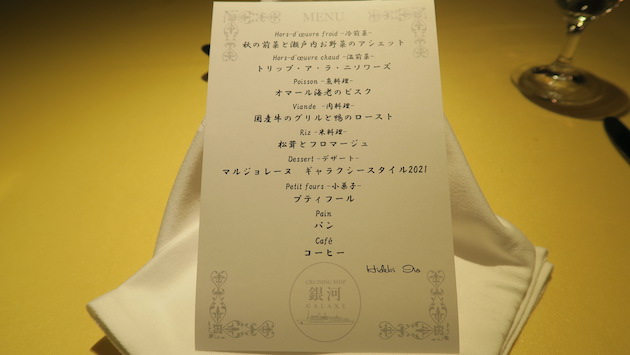 MENU
Hors-d'œuvre froid -冷前菜-
秋の前菜と瀬戸内お野菜のアシェット
Hors-d'œuvre chaud -温前菜-
トリップ・ア・ラ・ニソワーズ
Poisson -魚料理-
オマール海老のビスク
Viande -肉料理-
国産牛のグリルと鴨のロースト
Riz -米料理-
松茸とフロマージュ
Dessert -デザート-
マルジョレーヌ ギャラクシースタイル2021
Petit fours -小菓子-
プティフール
Pain
パン
Café
コーヒー
CRUISING SHIP
銀河
GALAXY